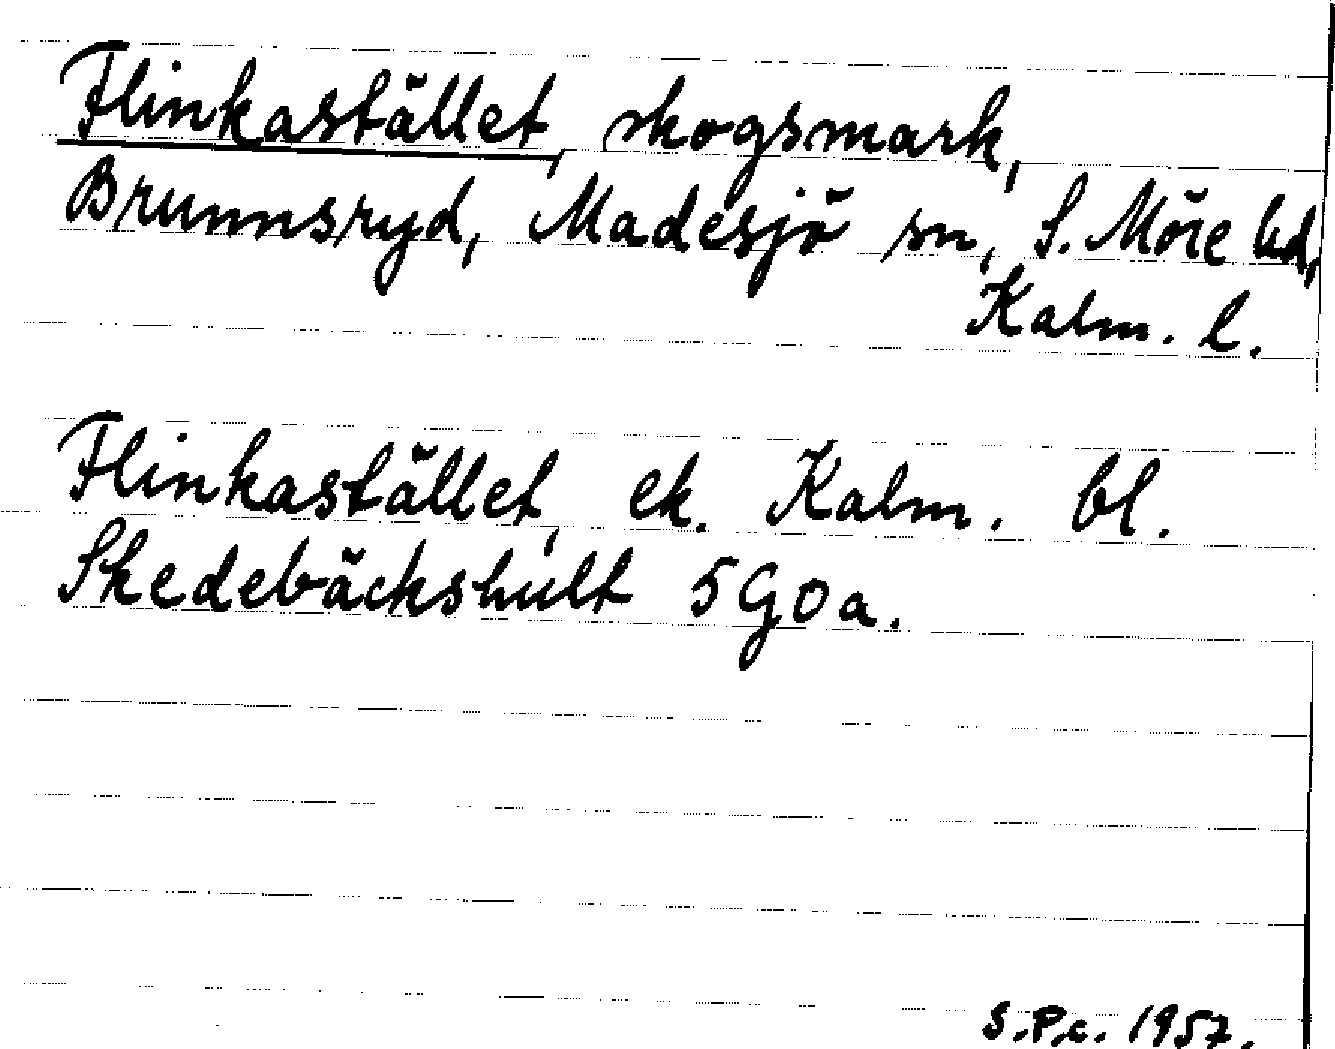 Flinkastället, skogsmark,
Brunnsryd, Madesjö sn, S. Möre hd,
Kalm. l.
Flinkastället, ek. Kalm. bl.
Skedebäckshult 5 G 0 a.
S.P.c. 1957.